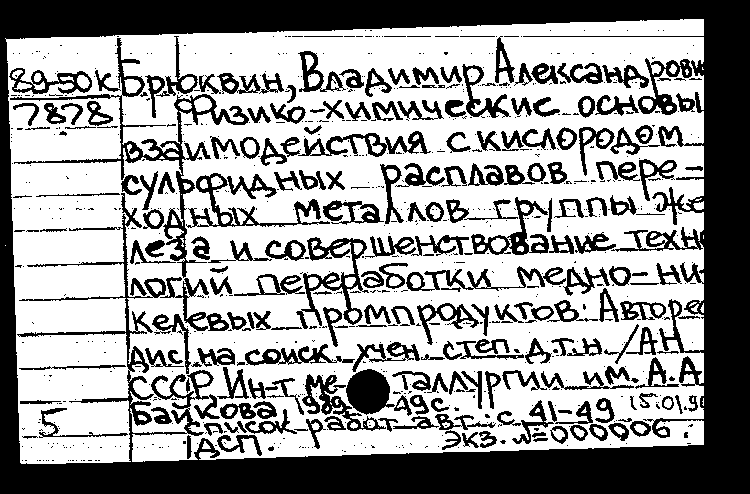 89-50К Брюквин, Владимир Александрович
7878 Физико-химические основы
взаимодействия с кислородом
сульфидных расплавов пере-
ходных металлов группы же
леза и совершенствование техн
логий переработки медно-ни-
келевых промпродуктов: Авторе
дис. на соиск. учен. степ. д.т.н. /АН
СССР Ин-т ме- таллургии им. А.А
Байкова, 1989 -49с. 15.01.90
5 список работ авт.: с. 41-49
ДСП. экз. №=000006.